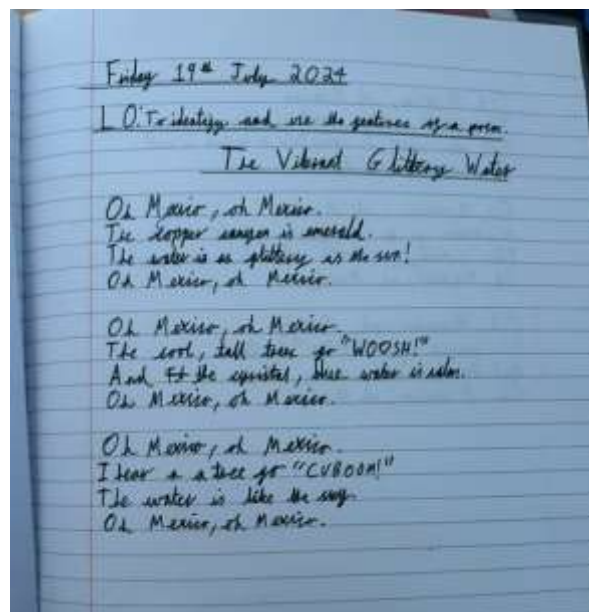 Friday 19th July 2024
L.O: To identify and use the features of a poem.
The Vibrant Glittery Water
Oh Mexico, oh Mexico.
The copper canyon is emerald.
The water is as glittery as the sun!
Oh Mexico, oh Mexico.
Oh Mexico, oh Mexico.
The cool, tall trees go "WOOSH!"
And the crystal, blue water is calm.
Oh Mexico, oh Mexico.
Oh Mexico, oh Mexico.
I hear a a tree go "CVBOOM!"
The water is like the sky.
Oh Mexico, oh Mexico.